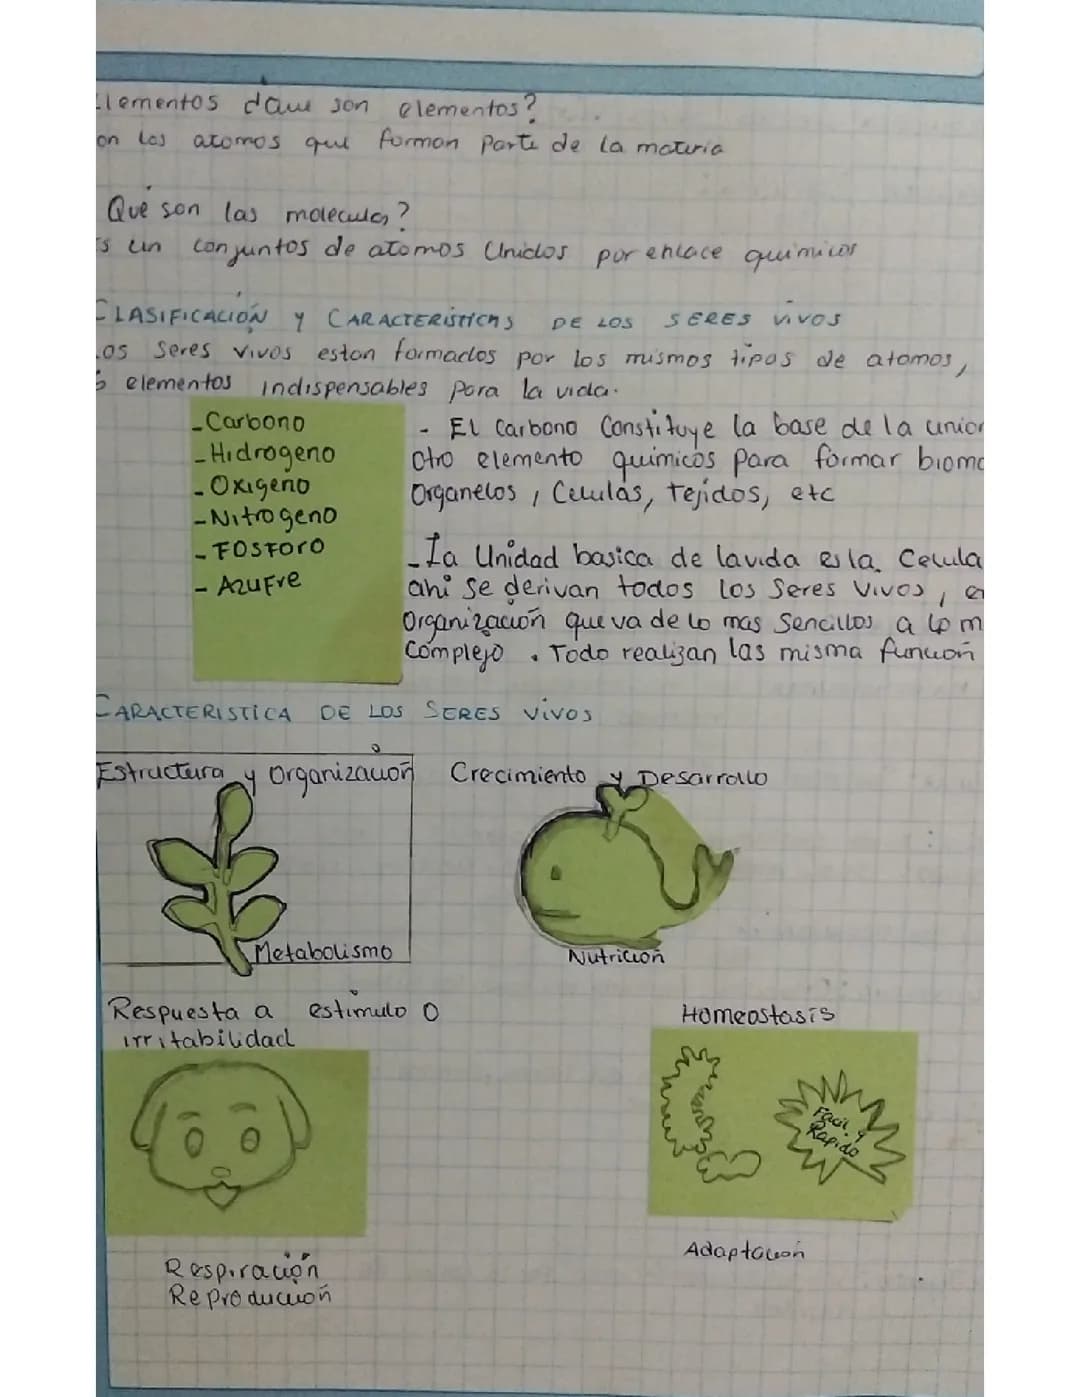 Elementos dque son elementos?
on los atomos que forman parte de la materia
Qué son las moleculas?
Es un conjuntos de atomos Unidos por enlace quimicos
CLASIFICACIÓN y CARACTERISTICAS DE LOS SERES VIVOS
Los Seres vivos estan formados por los mismos tipos de atomos,
6 elementos indispensables para la vida.
- Carbono
- Hidrogeno
- Oxigeno
- Nitrogeno
- FOSFORO
- Azufre
- El Carbono Constituye la base de la union
Otro elemento quimicos para formar biomo
Organelos, Celulas, tejidos, etc
- La Unidad basica de la vida es la Celula
ahi se derivan todos los Seres Vivos, en
Organización que va de lo mas Sencillos a lo m
Complejo. Todo realizan las misma función
CARACTERISTICA DE LOS SERES VIVOS
Estructura y Organización Crecimiento y Desarrollo
Metabolismo Nutrición
Respuesta a estimulo o Homeostasis
irritabilidad
Facil y
Rapido
Adaptación
Respiración
Reproducción